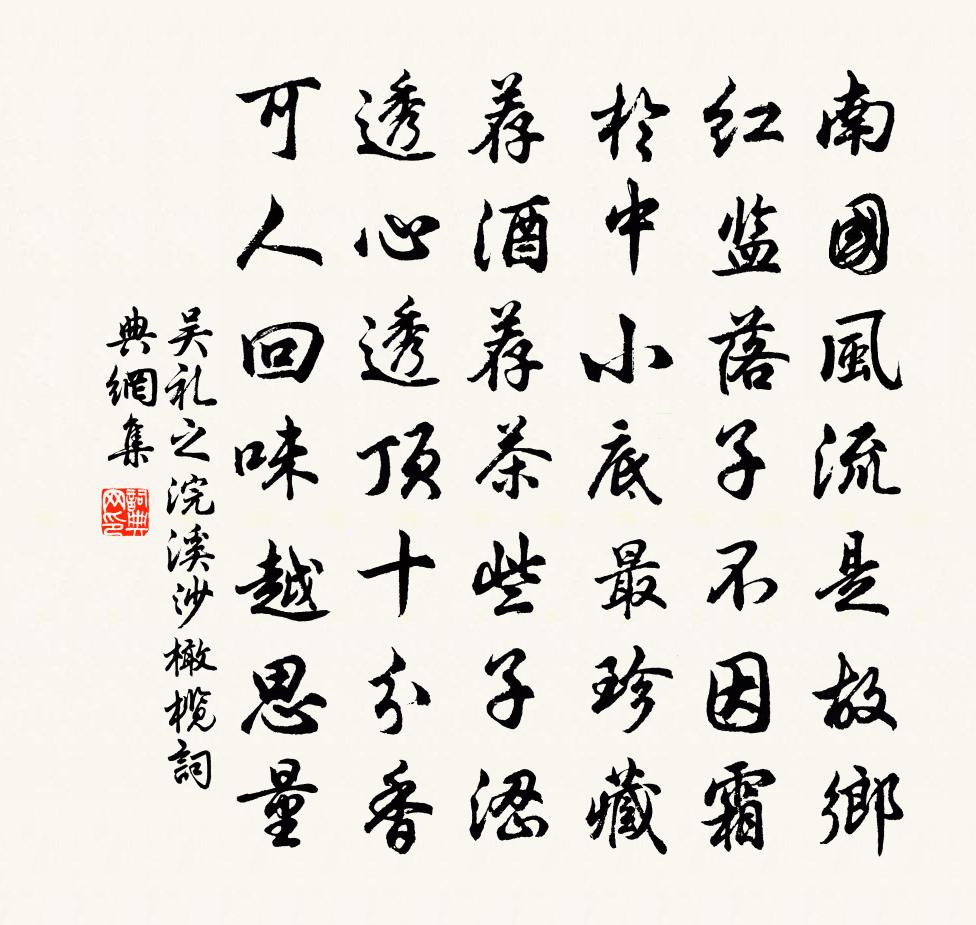 南國風流是故鄉
红监落子不因霜
於中小底最珍藏
荐酒荐茶些子涩
透心透顶十分香
可人回味越思量
吴礼之浣溪沙橄榄詞
典網集
詞典
网印